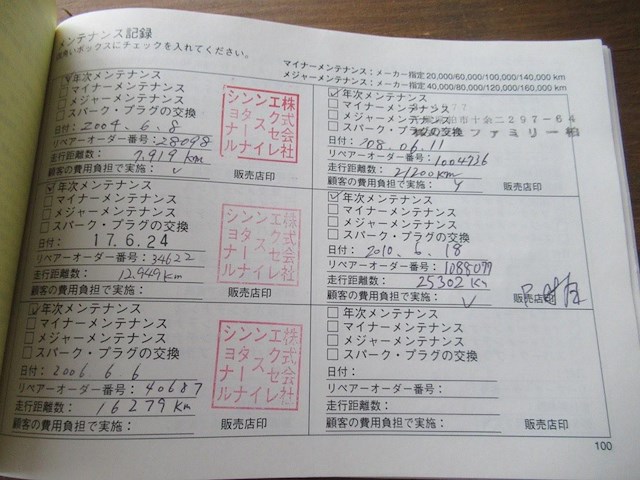 メンテナンス記録
ボックスにチェックを入れてください。
マイナーメンテナンス：メーカー指定 20,000/60,000/100,000/140,000 km
メジャーメンテナンス：メーカー指定 40,000/80,000/120,000/160,000 km
年次メンテナンス
マイナーメンテナンス
メジャーメンテナンス
スパーク・プラグの交換
日付： 2004. 6. 8
リペアーオーダー番号：28098
走行距離数： 7,919 km
顧客の費用負担で実施：
販売店印
年次メンテナンス
マイナーメンテナンス
メジャーメンテナンス
スパーク・プラグの交換
日付： 17.6.24
リペアーオーダー番号： 34622
走行距離数： 12.949 km
顧客の費用負担で実施：
販売店印
年次メンテナンス
マイナーメンテナンス
メジャーメンテナンス
スパーク・プラグの交換
日付： 2006 6. 6
リペアーオーダー番号： 40687
走行距離数： 16279 km
顧客の費用負担で実施：
販売店印
年次メンテナンス
マイナーメンテナンス
メジャーメンテナンス
スパーク・プラグの交換
市十余二297-64
ファミリー柏
日付： '08.06.11
リペアーオーダー番号： 1004736
走行距離数： 21200km
顧客の費用負担で実施：
販売店印
年次メンテナンス
マイナーメンテナンス
メジャーメンテナンス
スパーク・プラグの交換
日付： 2010. 6. 18
リペアーオーダー番号： 1088079
走行距離数： 25302 km
顧客の費用負担で実施：
販売店印
年次メンテナンス
マイナーメンテナンス
メジャーメンテナンス
スパーク・プラグの交換
日付：
リペアーオーダー番号：
走行距離数：
顧客の費用負担で実施：
販売店印
100